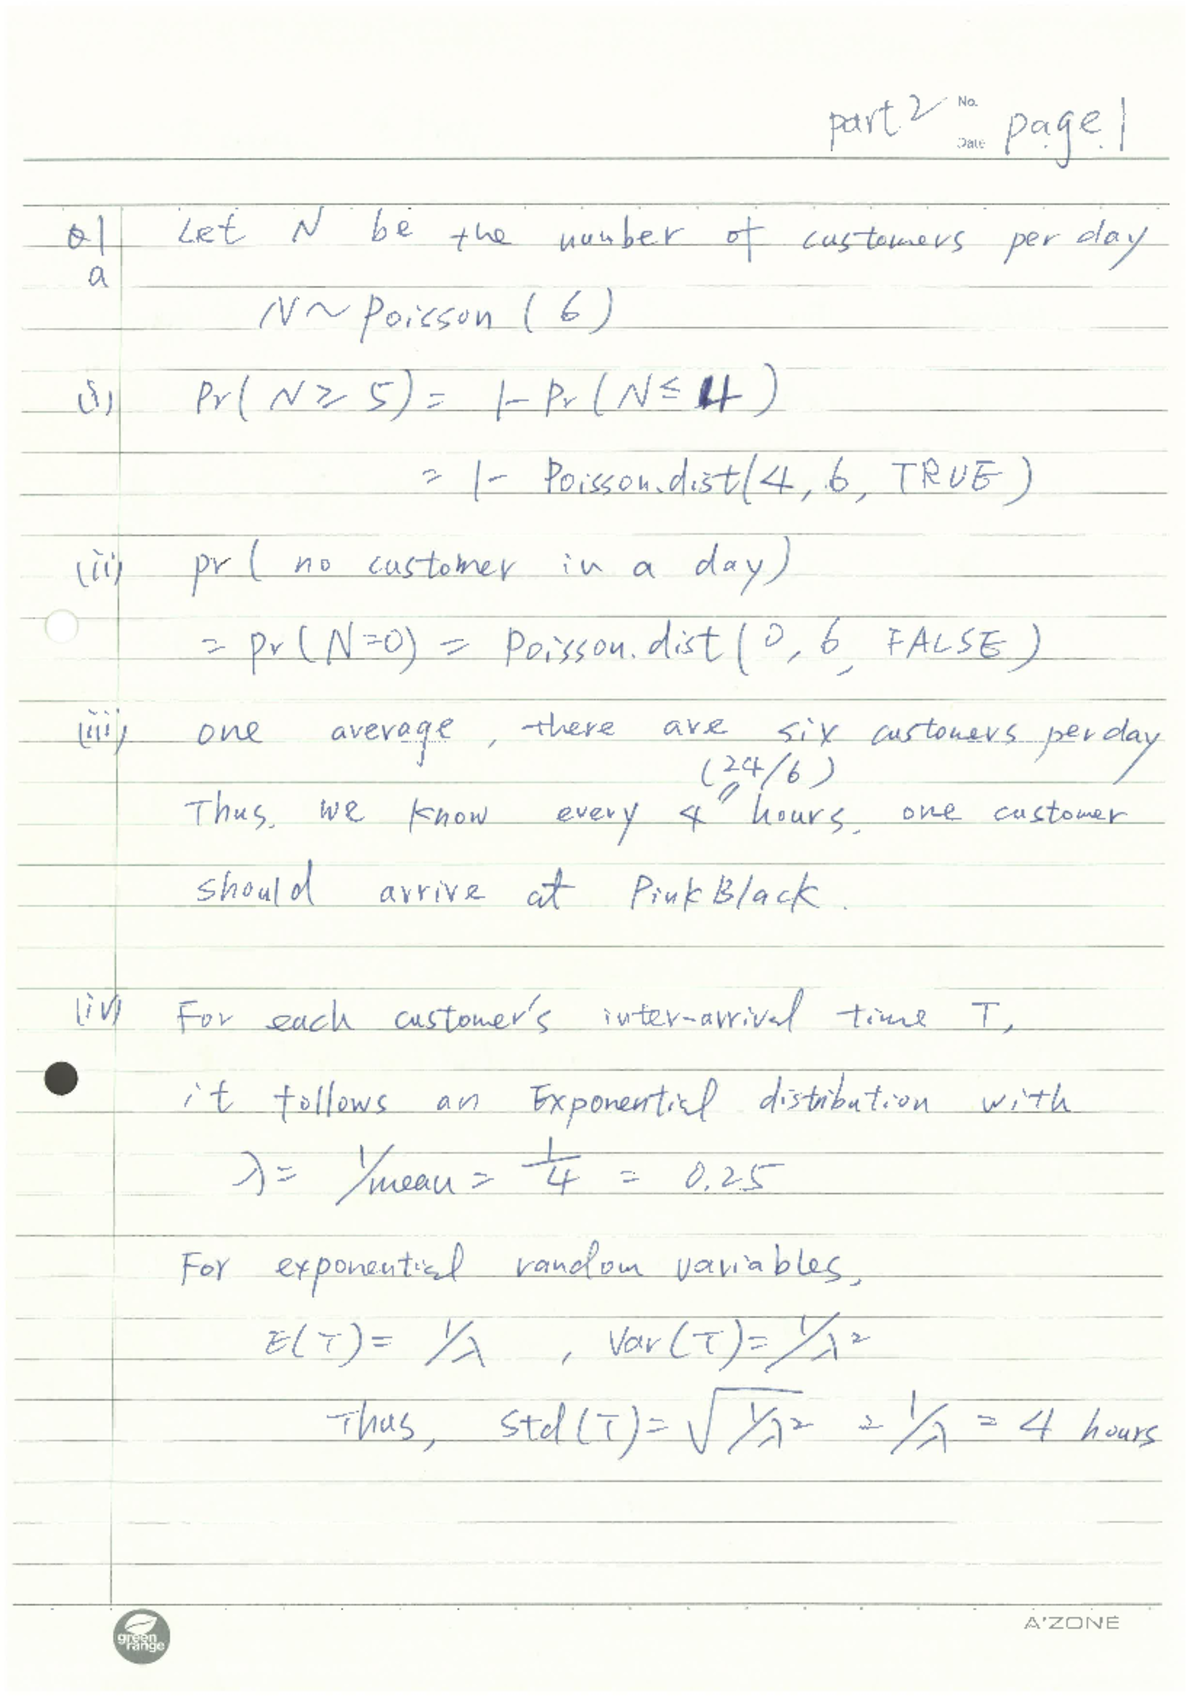 part 2 No. page 1
Date
Q1 Let N be the number of customers per day
a
N ~ Poisson ( 6 )
(i) Pr( N ≥ 5 ) = 1 - Pr ( N ≤ 4 )
= 1 - Poisson.dist(4, 6, TRUE )
(ii) pr ( no customer in a day)
= pr ( N=0) = Poisson.dist ( 0, 6, FALSE )
(iii) one average, there are six customers per day
(24/6)
Thus, we know every 4 hours, one customer
should arrive at PinkBlack.
(iv) For each customer's inter-arrival time T,
it follows an Exponential distribution with
λ = 1/mean = 1/4 = 0.25
For exponential random variables,
E(T) = 1/λ , Var(T) = 1/λ²
Thus, Std(T) = √1/λ² = 1/λ = 4 hours
green
range
A'ZONE